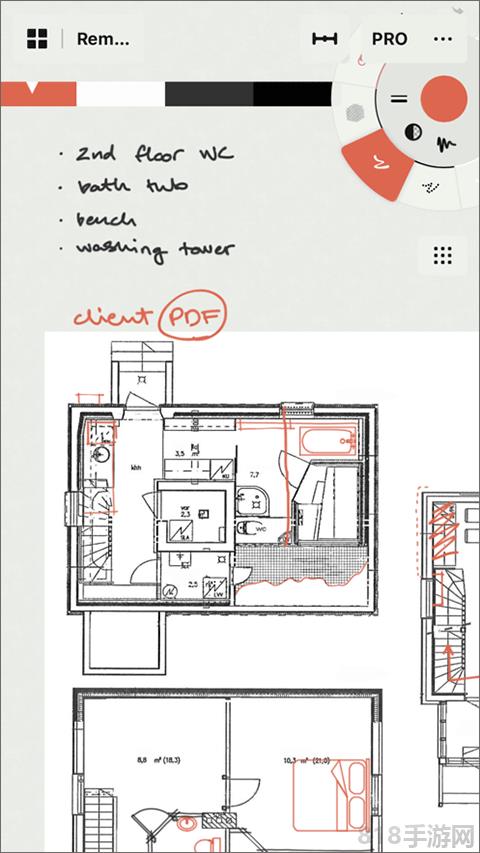 Rem...
PRO
2nd floor WC
bath tub
bench
washing tower
client PDF
3,5 m²
khh
7,7
var
2,3
WC
2,5
8,8 m² (18,3)
10,3 m² (21,0)
818手游网